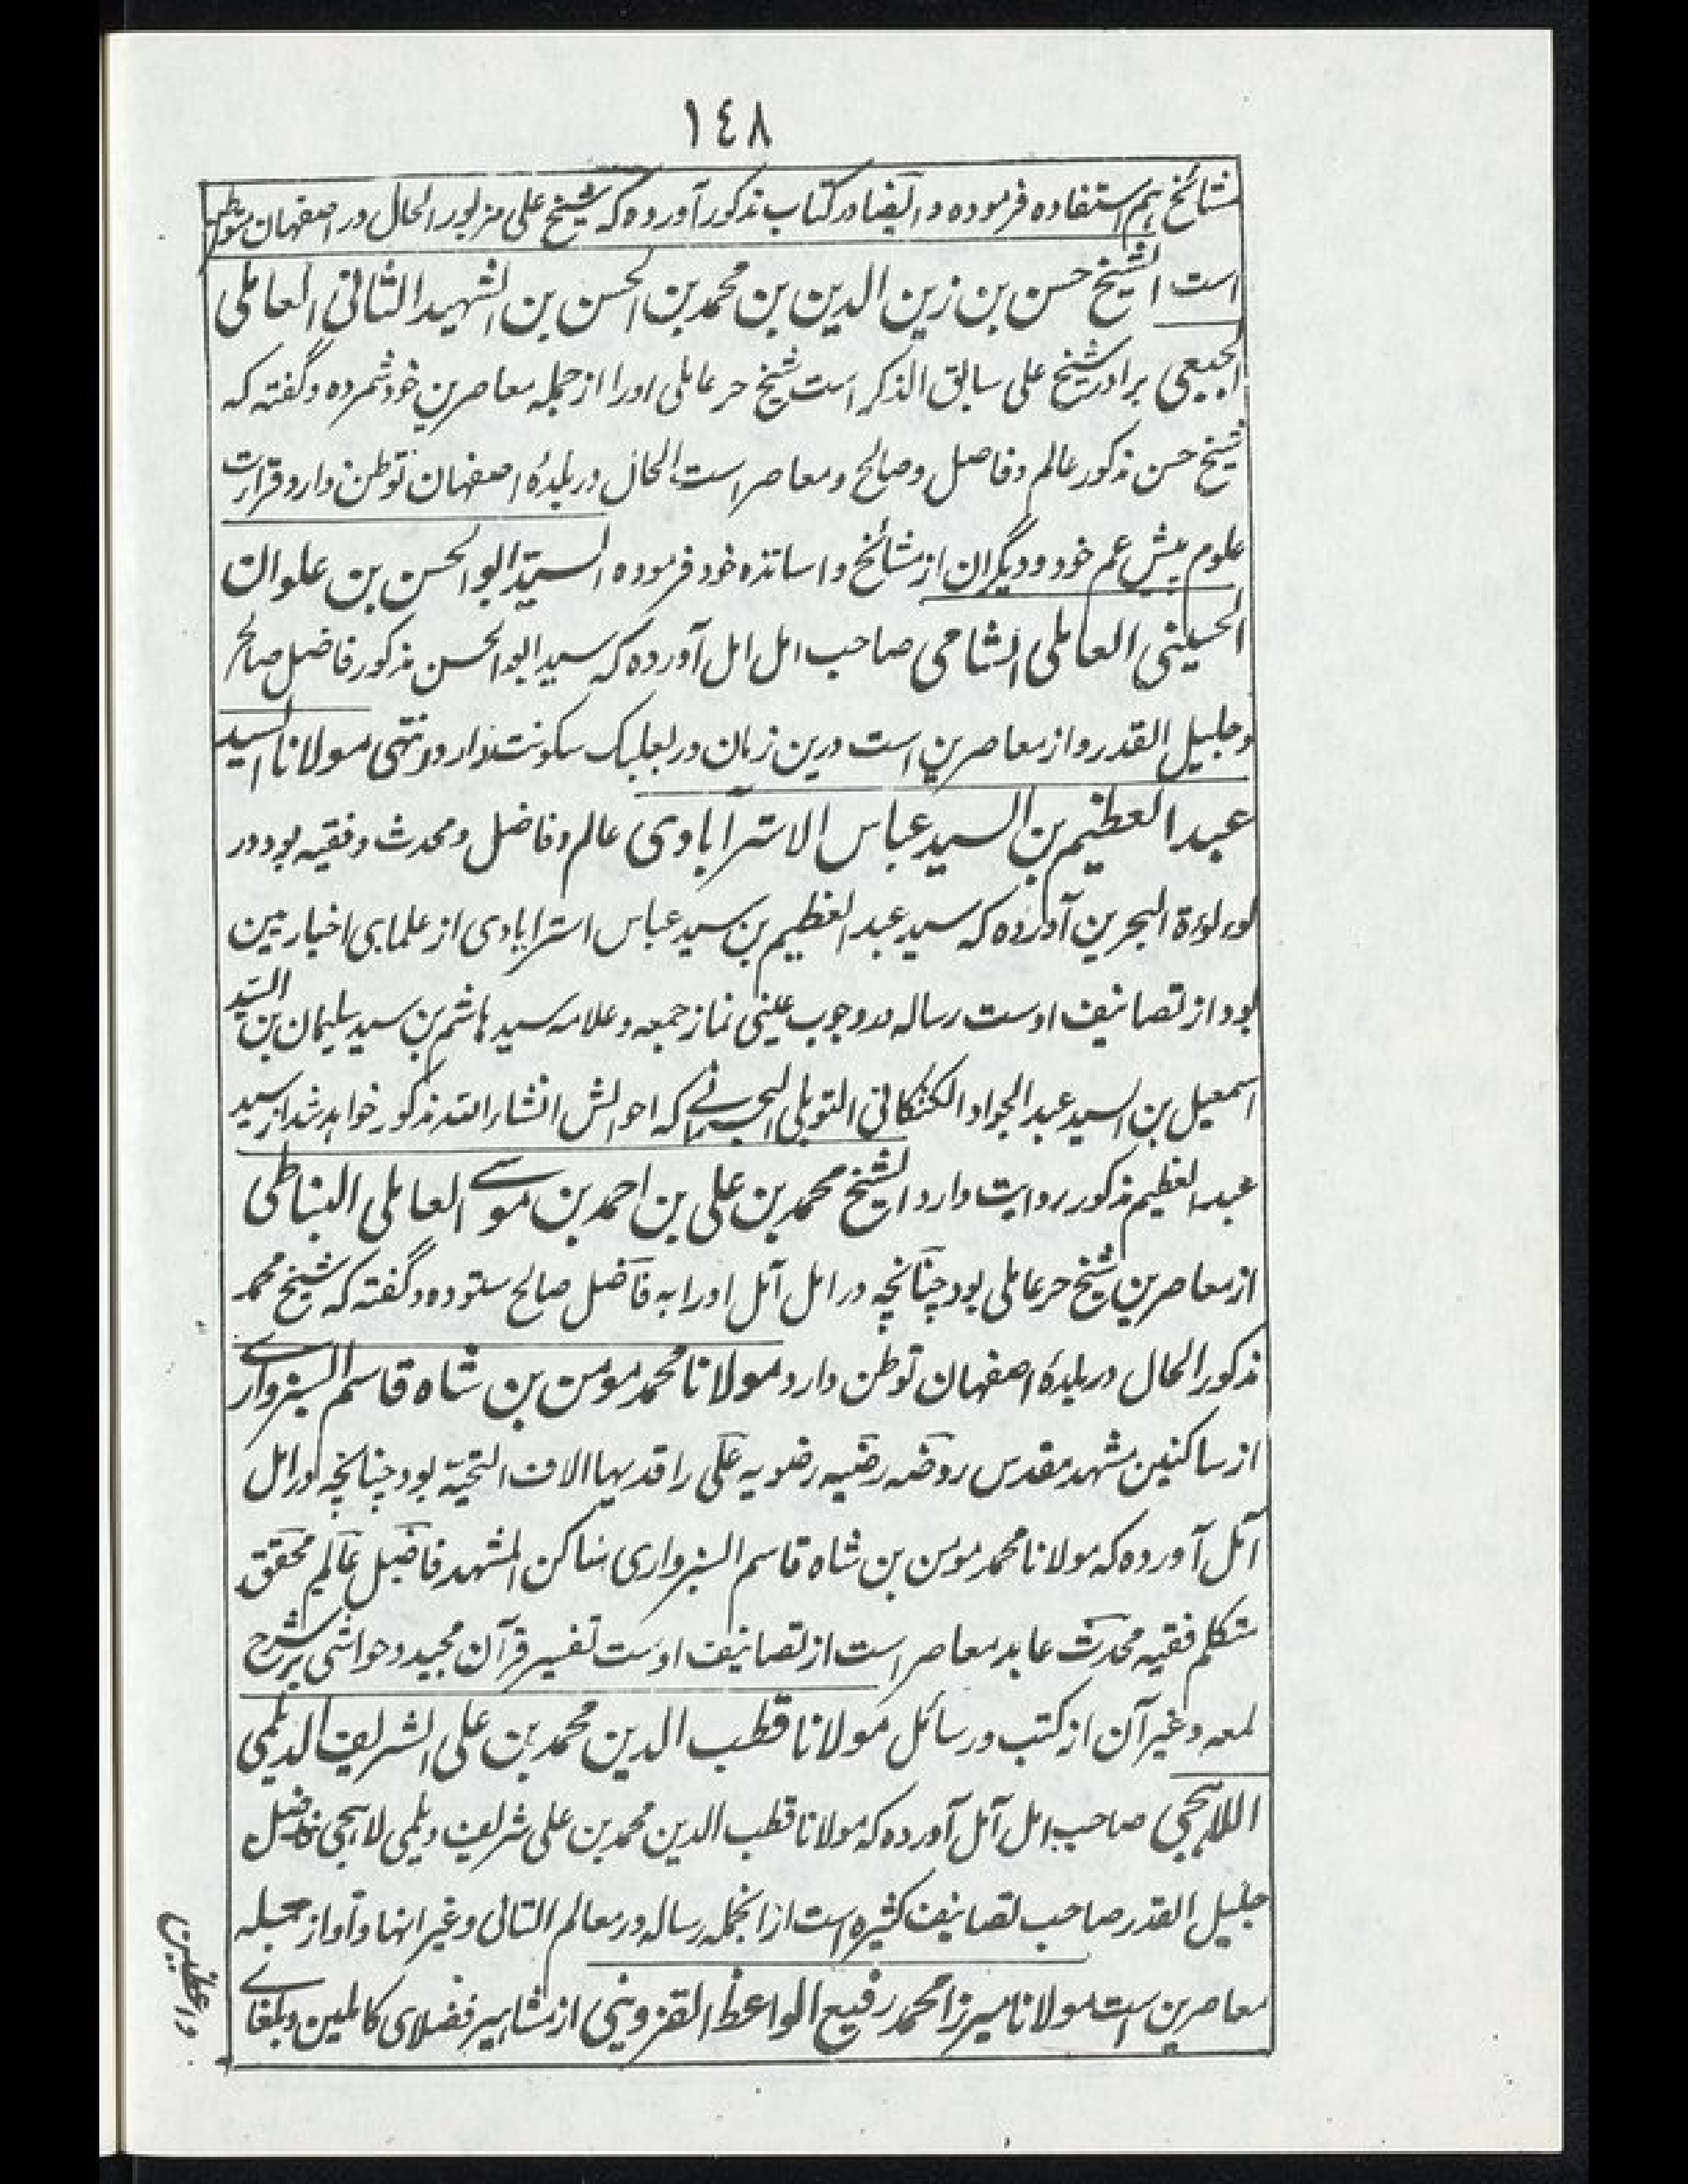 ١٤٨
مشائخ هم استفاده فرموده و ایضا در کتاب مذکور آورده که شیخ علی مزبور الحال در اصفهان متوطن
است الشیخ حسن بن زین الدین بن محمد بن الحسن بن الشهید الثانی العاملی
الجبعی برادر شیخ علی سابق الذکر است شیخ حر عاملی اورا از جمله معاصرین خود شمرده و گفته که
شیخ حسن مذکور عالم و فاضل و صالح و معاصر است الحال در بلدهٔ اصفهان توطن دارد و قرارت
علوم پیش عم خود و دیگران از مشائخ و اساتذه خود فرموده السید ابو الحسن بن علوان
الحسینی العاملی الشامی صاحب امل امل آورده که سید ابو الحسن مذکور فاضل صالح
و جلیل القدر و از معاصرین است درین زمان در بعلبک سکونت دارد و انتهی مولانا السید
عبد العظیم بن السید عباس الاسترآبادی عالم و فاضل و محدث و فقیه بود در
لولوة البحرین آورده که سید عبد العظیم بن سید عباس استرابادی از علمای اخباریین
بود از تصانیف اوست رساله در وجوب عینی نماز جمعه و علامه سید هاشم بن سید سلیمان بن السید
اسمعیل بن السید عبد الجواد الکتکانی التوبلی البحرانی که احوالش انشاء الله مذکور خواهد شد از سید
عبد العظیم مذکور روایت دارد الشیخ محمد بن علی بن احمد بن موسی العاملی النباطی
از معاصرین شیخ حر عاملی بود چنانچه در امل آمل اورا به فاضل صالح ستوده و گفته که شیخ محمد
مذکور الحال در بلدهٔ اصفهان توطن دارد مولانا محمد مومن بن شاه قاسم السبزواری
از ساکنین مشهد مقدس روضه رضیه رضویه علی راقدیها الاف التحیة بود چنانچه در امل
آمل آورده که مولانا محمد مومن بن شاه قاسم السبزواری ساکن المشهد فاضل عالم محقق
متکلم فقیه محدث عابد معاصر است از تصانیف اوست تفسیر قرآن مجید و حواشی بر شرح
لمعه و غیر آن از کتب و رسائل مولانا قطب الدین محمد بن علی الشریف الدیلمی
اللاهجی صاحب امل آمل آورده که مولانا قطب الدین محمد بن علی شریف دیلمی لاهجی فاضل
جلیل القدر صاحب تصانیف کثیره است از انجمله رساله در معالم التالی و غیر انها و او از جمله
معاصرین است مولانا میرزا محمد رفیع الواعظ القزوینی از مشاهیر فضلای کاملین و بلغای
واعظین